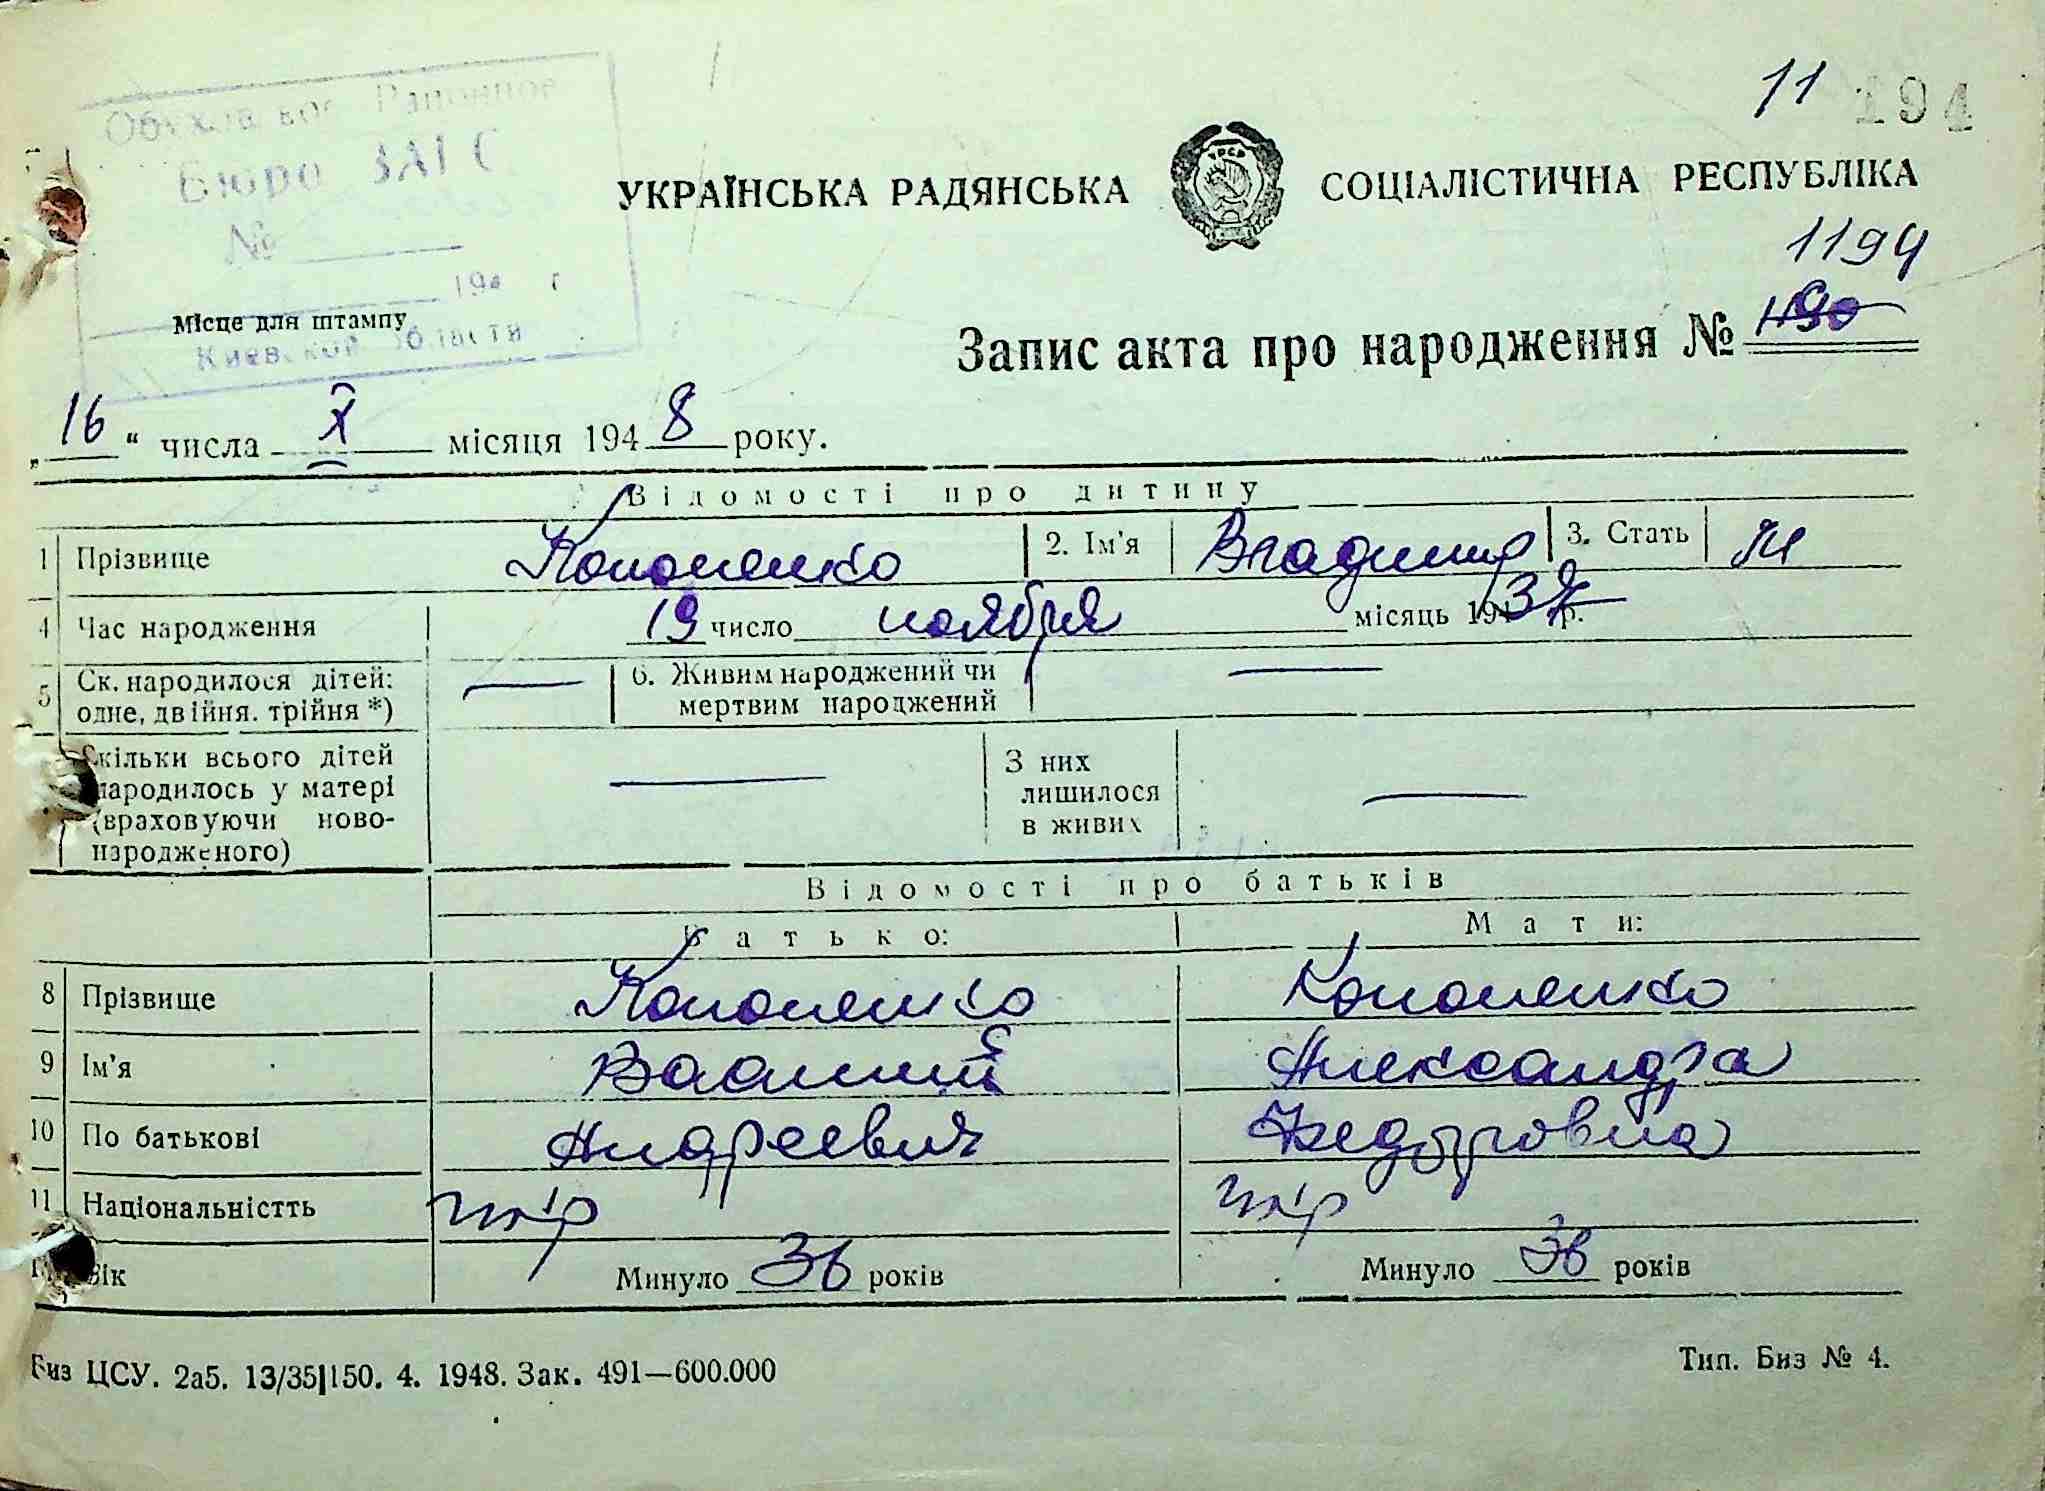 11 194
Районное
Бюро ЗАГС
№
194 г
Киевской области
Місце для штампу
УКРАЇНСЬКА РАДЯНСЬКА СОЦІАЛІСТИЧНА РЕСПУБЛІКА
УРСР
1194
Запис акта про народження № 1190
„16“ числа X місяця 1948 року.
Відомості про дитину
1 Прізвище Кононенко 2. Ім'я Владимир 3. Стать М
4 Час народження 19 число ноября місяць 1937 р.
5 Ск. народилося дітей: одне, двійня. трійня *) — 6. Живим народжений чи мертвим народжений —
Скільки всього дітей народилось у матері (враховуючи новонародженого) — З них лишилося в живих —
Відомості про батьків
Батько: Мати:
8 Прізвище Кононенко Кононенко
9 Ім'я Василий Александра
10 По батькові Андреевич Федоровна
11 Національністть укр укр
Вік Минуло 36 років Минуло 36 років
Биз ЦСУ. 2а5. 13/35|150. 4. 1948. Зак. 491—600.000
Тип. Биз № 4.